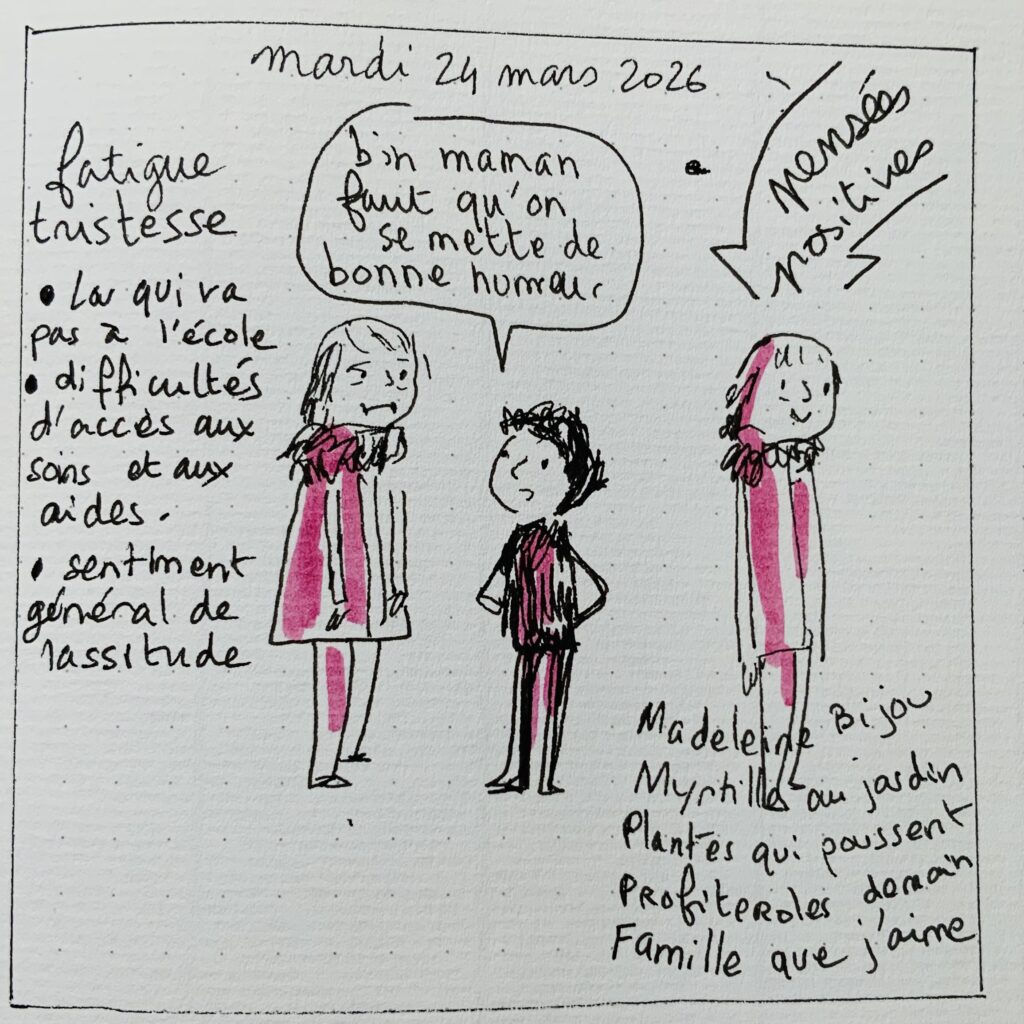 mardi 24 mars 2026
fatigue
tristesse
• Lou qui va
pas à l'école
• difficultés
d'accès aux
soins et aux
aides.
• sentiment
général de
lassitude
bin maman
faut qu'on
se mette de
bonne humeur.
pensées
positives
Madeleine Bijou
Myrtille au jardin
Plantes qui poussent
Profiteroles demain
Famille que j'aime